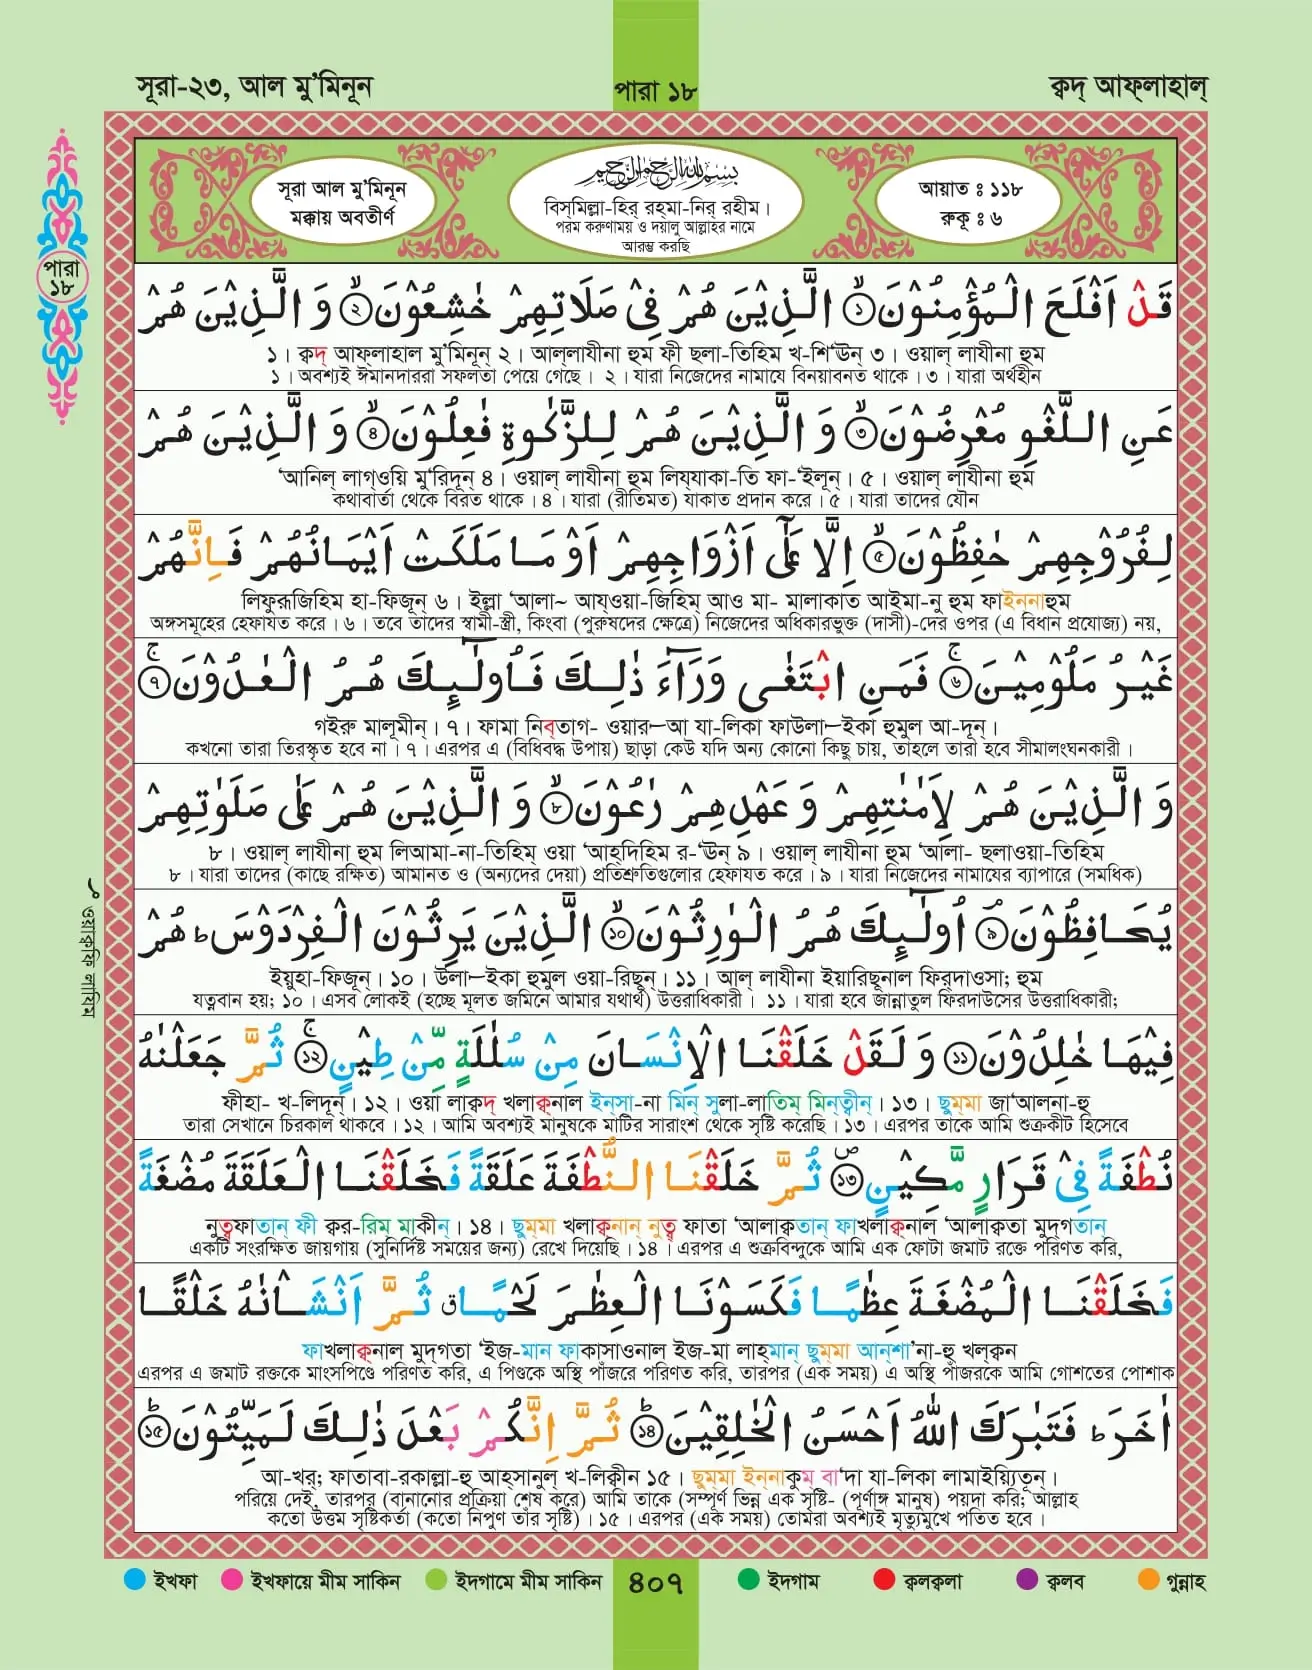 সূরা-২৩, আল মু’মিনূন
পারা ১৮
ক্বদ্ আফ্লাহাল্
পারা
১৮
সূরা আল মু’মিনূন
মক্কায় অবতীর্ণ
بِسْمِ اللهِ الرَّحْمٰنِ الرَّحِيْمِ
বিস্মিল্লা-হির্ রহ্মা-নির্ রহীম।
পরম করুণাময় ও দয়ালু আল্লাহর নামে
আরম্ভ করছি
আয়াত ঃ ১১৮
রুকূ ঃ ৬
قَدْ اَفْلَحَ الْمُؤْمِنُوْنَ ۙ‏﴿১﴾ الَّذِيْنَ هُمْ فِيْ صَلَاتِهِمْ خٰشِعُوْنَ ۙ‏﴿২﴾ وَ الَّذِيْنَ هُمْ
১। ক্বদ্ আফ্লাহাল মু’মিনূন্ ২। আল্লাযীনা হুম ফী ছলা-তিহিম খ-শি‘ঊন্ ৩। ওয়াল্ লাযীনা হুম
১। অবশ্যই ঈমানদাররা সফলতা পেয়ে গেছে। ২। যারা নিজেদের নামাযে বিনয়াবনত থাকে। ৩। যারা অর্থহীন
عَنِ اللَّغْوِ مُعْرِضُوْنَ ۙ‏﴿৩﴾ وَ الَّذِيْنَ هُمْ لِلزَّكٰوةِ فٰعِلُوْنَ ۙ‏﴿৪﴾ وَ الَّذِيْنَ هُمْ
‘আনিল্ লাগ্ওয়ি মু‘রিদূন্ ৪। ওয়াল্ লাযীনা হুম লিয্যাকা-তি ফা-‘ইলূন্। ৫। ওয়াল্ লাযীনা হুম
কথাবার্তা থেকে বিরত থাকে। ৪। যারা (রীতিমত) যাকাত প্রদান করে। ৫। যারা তাদের যৌন
لِفُرُوْجِهِمْ حٰفِظُوْنَ ۙ‏﴿৫﴾ اِلَّا عَلٰٓى اَزْوَاجِهِمْ اَوْ مَا مَلَكَتْ اَيْمَانُهُمْ فَاِنَّهُمْ
লিফুরূজিহিম হা-ফিজূন্ ৬। ইল্লা ‘আলা~ আয্ওয়া-জিহিম্ আও মা- মালাকাত আইমা-নু হুম ফাইন্নাহুম
অঙ্গসমূহের হেফাযত করে। ৬। তবে তাদের স্বামী-স্ত্রী, কিংবা (পুরুষদের ক্ষেত্রে) নিজেদের অধিকারভুক্ত (দাসী)-দের ওপর (এ বিধান প্রযোজ্য) নয়,
غَيْرُ مَلُوْمِيْنَ ۚ‏﴿৬﴾ فَمَنِ ابْتَغٰى وَرَآءَ ذٰلِكَ فَاُولٰٓئِكَ هُمُ الْعٰدُوْنَ ۚ‏﴿৭﴾
গইরু মালূমীন্। ৭। ফামা নিব্তাগ- ওয়ার—আ যা-লিকা ফাউলা—ইকা হুমুল আ-দূন্।
কখনো তারা তিরস্কৃত হবে না। ৭। এরপর এ (বিধিবদ্ধ উপায়) ছাড়া কেউ যদি অন্য কোনো কিছু চায়, তাহলে তারা হবে সীমালংঘনকারী।
وَ الَّذِيْنَ هُمْ لِاَمٰنٰتِهِمْ وَ عَهْدِهِمْ رٰعُوْنَ ۙ‏﴿৮﴾ وَ الَّذِيْنَ هُمْ عَلٰى صَلَوٰتِهِمْ
৮। ওয়াল্ লাযীনা হুম লিআমা-না-তিহিম্ ওয়া ‘আহ্দিহিম র-‘ঊন্ ৯। ওয়াল্ লাযীনা হুম ‘আলা- ছলাওয়া-তিহিম
৮। যারা তাদের (কাছে রক্ষিত) আমানত ও (অন্যদের দেয়া) প্রতিশ্রুতিগুলোর হেফাযত করে। ৯। যারা নিজেদের নামাযের ব্যাপারে (সমধিক)
يُحَافِظُوْنَ ۘ‏﴿৯﴾ اُولٰٓئِكَ هُمُ الْوٰرِثُوْنَ ۙ‏﴿১০﴾ الَّذِيْنَ يَرِثُوْنَ الْفِرْدَوْسَ ؕ هُمْ
ইয়ুহা-ফিজূন্। ১০। উলা—ইকা হুমুল ওয়া-রিছূন্। ১১। আল্ লাযীনা ইয়ারিছূনাল ফিরদাওসা; হুম
যত্নবান হয়; ১০। এসব লোকই (হচ্ছে মূলত জমিনে আমার যথার্থ) উত্তরাধিকারী। ১১। যারা হবে জান্নাতুল ফিরদাউসের উত্তরাধিকারী;
ওয়াক্বফি লাযিম
فِيْهَا خٰلِدُوْنَ‏﴿১১﴾ وَ لَقَدْ خَلَقْنَا الْاِنْسَانَ مِنْ سُلٰلَةٍ مِّنْ طِيْنٍ ۚ‏﴿১২﴾ ثُمَّ جَعَلْنٰهُ
ফীহা- খ-লিদূন্। ১২। ওয়া লাক্বদ্ খলাক্বনাল ইন্সা-না মিন্ সুলা-লাতিম্ মিন্ত্বীন্। ১৩। ছুম্মা জা‘আলনা-হু
তারা সেখানে চিরকাল থাকবে। ১২। আমি অবশ্যই মানুষকে মাটির সারাংশ থেকে সৃষ্টি করেছি। ১৩। এরপর তাকে আমি শুক্রকীট হিসেবে
نُطْفَةً فِيْ قَرَارٍ مَّكِيْنٍ ۪‏﴿১৩﴾ ثُمَّ خَلَقْنَا النُّطْفَةَ عَلَقَةً فَخَلَقْنَا الْعَلَقَةَ مُضْغَةً
নুত্বফাতান্ ফী ক্বর-রিম্ মাকীন্। ১৪। ছুম্মা খলাক্বনান্ নুত্ব ফাতা ‘আলাক্বতান্ ফাখলাক্বনাল ‘আলাক্বতা মুদ্গতান্
একটি সংরক্ষিত জায়গায় (সুনির্দিষ্ট সময়ের জন্য) রেখে দিয়েছি। ১৪। এরপর এ শুক্রবিন্দুকে আমি এক ফোটা জমাট রক্তে পরিণত করি,
فَخَلَقْنَا الْمُضْغَةَ عِظٰمًا فَكَسَوْنَا الْعِظٰمَ لَحْمًا ق ثُمَّ اَنْشَاْنٰهُ خَلْقًا
ফাখলাক্বনাল মুদ্গতা ‘ইজ-মান ফাকাসাওনাল ইজ-মা লাহ্মান্ ছুম্মা আন্শা’না-হু খল্ক্বন
এরপর এ জমাট রক্তকে মাংসপিণ্ডে পরিণত করি, এ পিণ্ডকে অস্থি পাঁজরে পরিণত করি, তারপর (এক সময়) এ অস্থি পাঁজরকে আমি গোশতের পোশাক
اٰخَرَ ؕ فَتَبٰرَكَ اللّٰهُ اَحْسَنُ الْخٰلِقِيْنَ ؕ‏﴿১৪﴾ ثُمَّ اِنَّكُمْ بَعْدَ ذٰلِكَ لَمَيِّتُوْنَ ؕ‏﴿১৫﴾
আ-খর; ফাতাবা-রকাল্লা-হু আহ্সানুল্ খ-লিক্বীন ১৫। ছুম্মা ইন্নাকুম্ বা‘দা যা-লিকা লামাইয়্যিতূন্।
পরিয়ে দেই, তারপর (বানানোর প্রক্রিয়া শেষ করে) আমি তাকে (সম্পূর্ণ ভিন্ন এক সৃষ্টি- (পূর্ণাঙ্গ মানুষ) পয়দা করি; আল্লাহ
কতো উত্তম সৃষ্টিকর্তা (কতো নিপুণ তাঁর সৃষ্টি)। ১৫। এরপর (এক সময়) তোমরা অবশ্যই মৃত্যুমুখে পতিত হবে।
ইখফা ইখফায়ে মীম সাকিন ইদগামে মীম সাকিন ৪০৭ ইদগাম ক্বলক্বলা ক্বলব গুন্নাহ